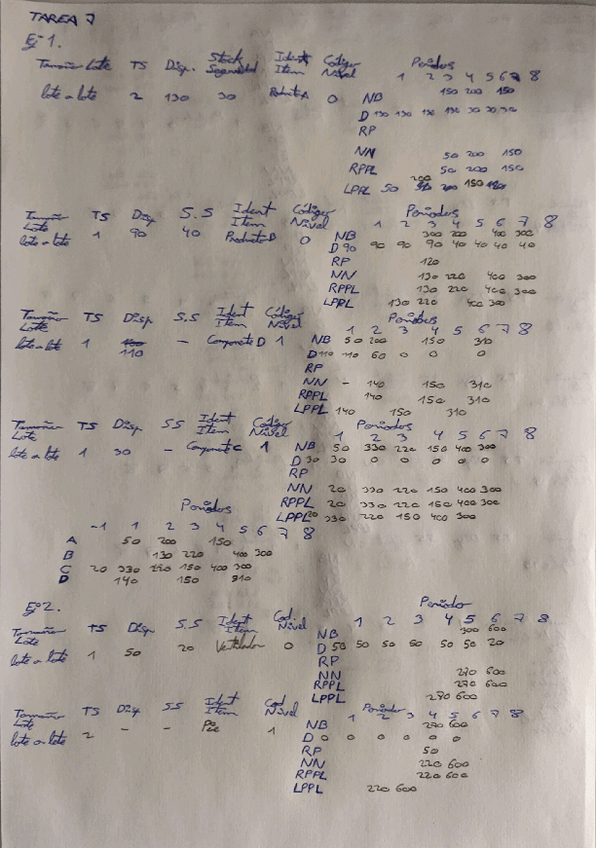 TAREA 7
Ej 1.
Tamaño Lote TS Disp. Stock Seguridad Ident Item Código Nivel Periodos
1 2 3 4 5 6 7 8
lote a lote 2 130 30 Producto A 0 NB 150 200 150
D 130 130 130 130 30 30 30
RP
NN 50 200 150
RPPL 50 200 150
LPPL 50 200 150
Tamaño Lote TS Disp S.S Ident Item Código Nivel Periodos
1 2 3 4 5 6 7 8
lote a lote 1 90 40 Producto B 0 NB 300 200 400 300
D 90 90 90 90 40 40 40 40
RP 120
NN 130 220 400 300
RPPL 130 220 400 300
LPPL 130 220 400 300
Tamaño Lote TS Disp. S.S Ident Item Código Nivel Periodos
1 2 3 4 5 6 7 8
lote a lote 1 110 - Componente D 1 NB 50 200 150 310
D 110 110 60 0 0 0
RP
NN - 140 150 310
RPPL 140 150 310
LPPL 140 150 310
Tamaño Lote TS Disp SS Ident Item Código Nivel Periodos
1 2 3 4 5 6 7 8
lote a lote 1 30 - Componente C 1 NB 50 330 220 150 400 300
D 30 30 0 0 0 0 0
RP
NN 20 330 220 150 400 300
RPPL 20 330 220 150 400 300
LPPL 20 330 220 150 400 300
Periodos
-1 1 2 3 4 5 6 7 8
A 50 200 150
B 130 220 400 300
C 20 330 220 150 400 300
D 140 150 310
Ej 2.
Tamaño Lote TS Disp. S.S Ident Item Cod. Nivel Periodo
1 2 3 4 5 6 7 8
lote a lote 1 50 20 Ventilador 0 NB 300 600
D 50 50 50 50 50 50 20
RP
NN 270 600
RPPL 270 600
LPPL 270 600
Tamaño Lote TS Disp - S.S Ident Item Cod Nivel Periodos
1 2 3 4 5 6 7 8
lote a lote 2 - - Pie 1 NB 270 600
D 0 0 0 0 0 0
RP 50
NN 220 600
RPPL 220 600
LPPL 220 600